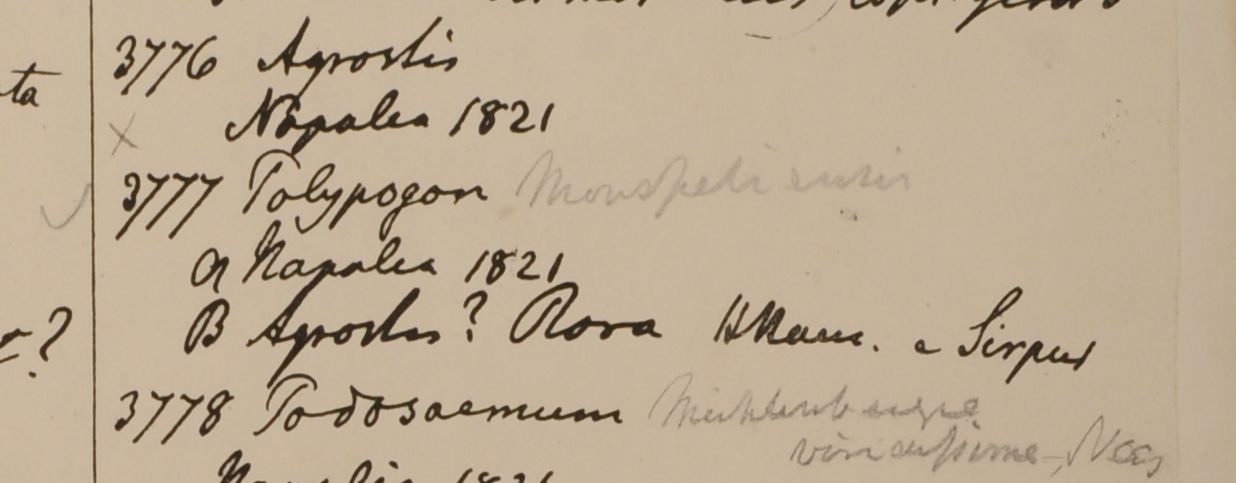 3776 Agrostis
ta
Napalea 1821
3777 Polypogon Monspeliensis
A Napalea 1821
B Agrostis? Rova HHam. e Sirpur
?
3778 Podosaemum Muhlenbergia
viridissima, Nees
1821